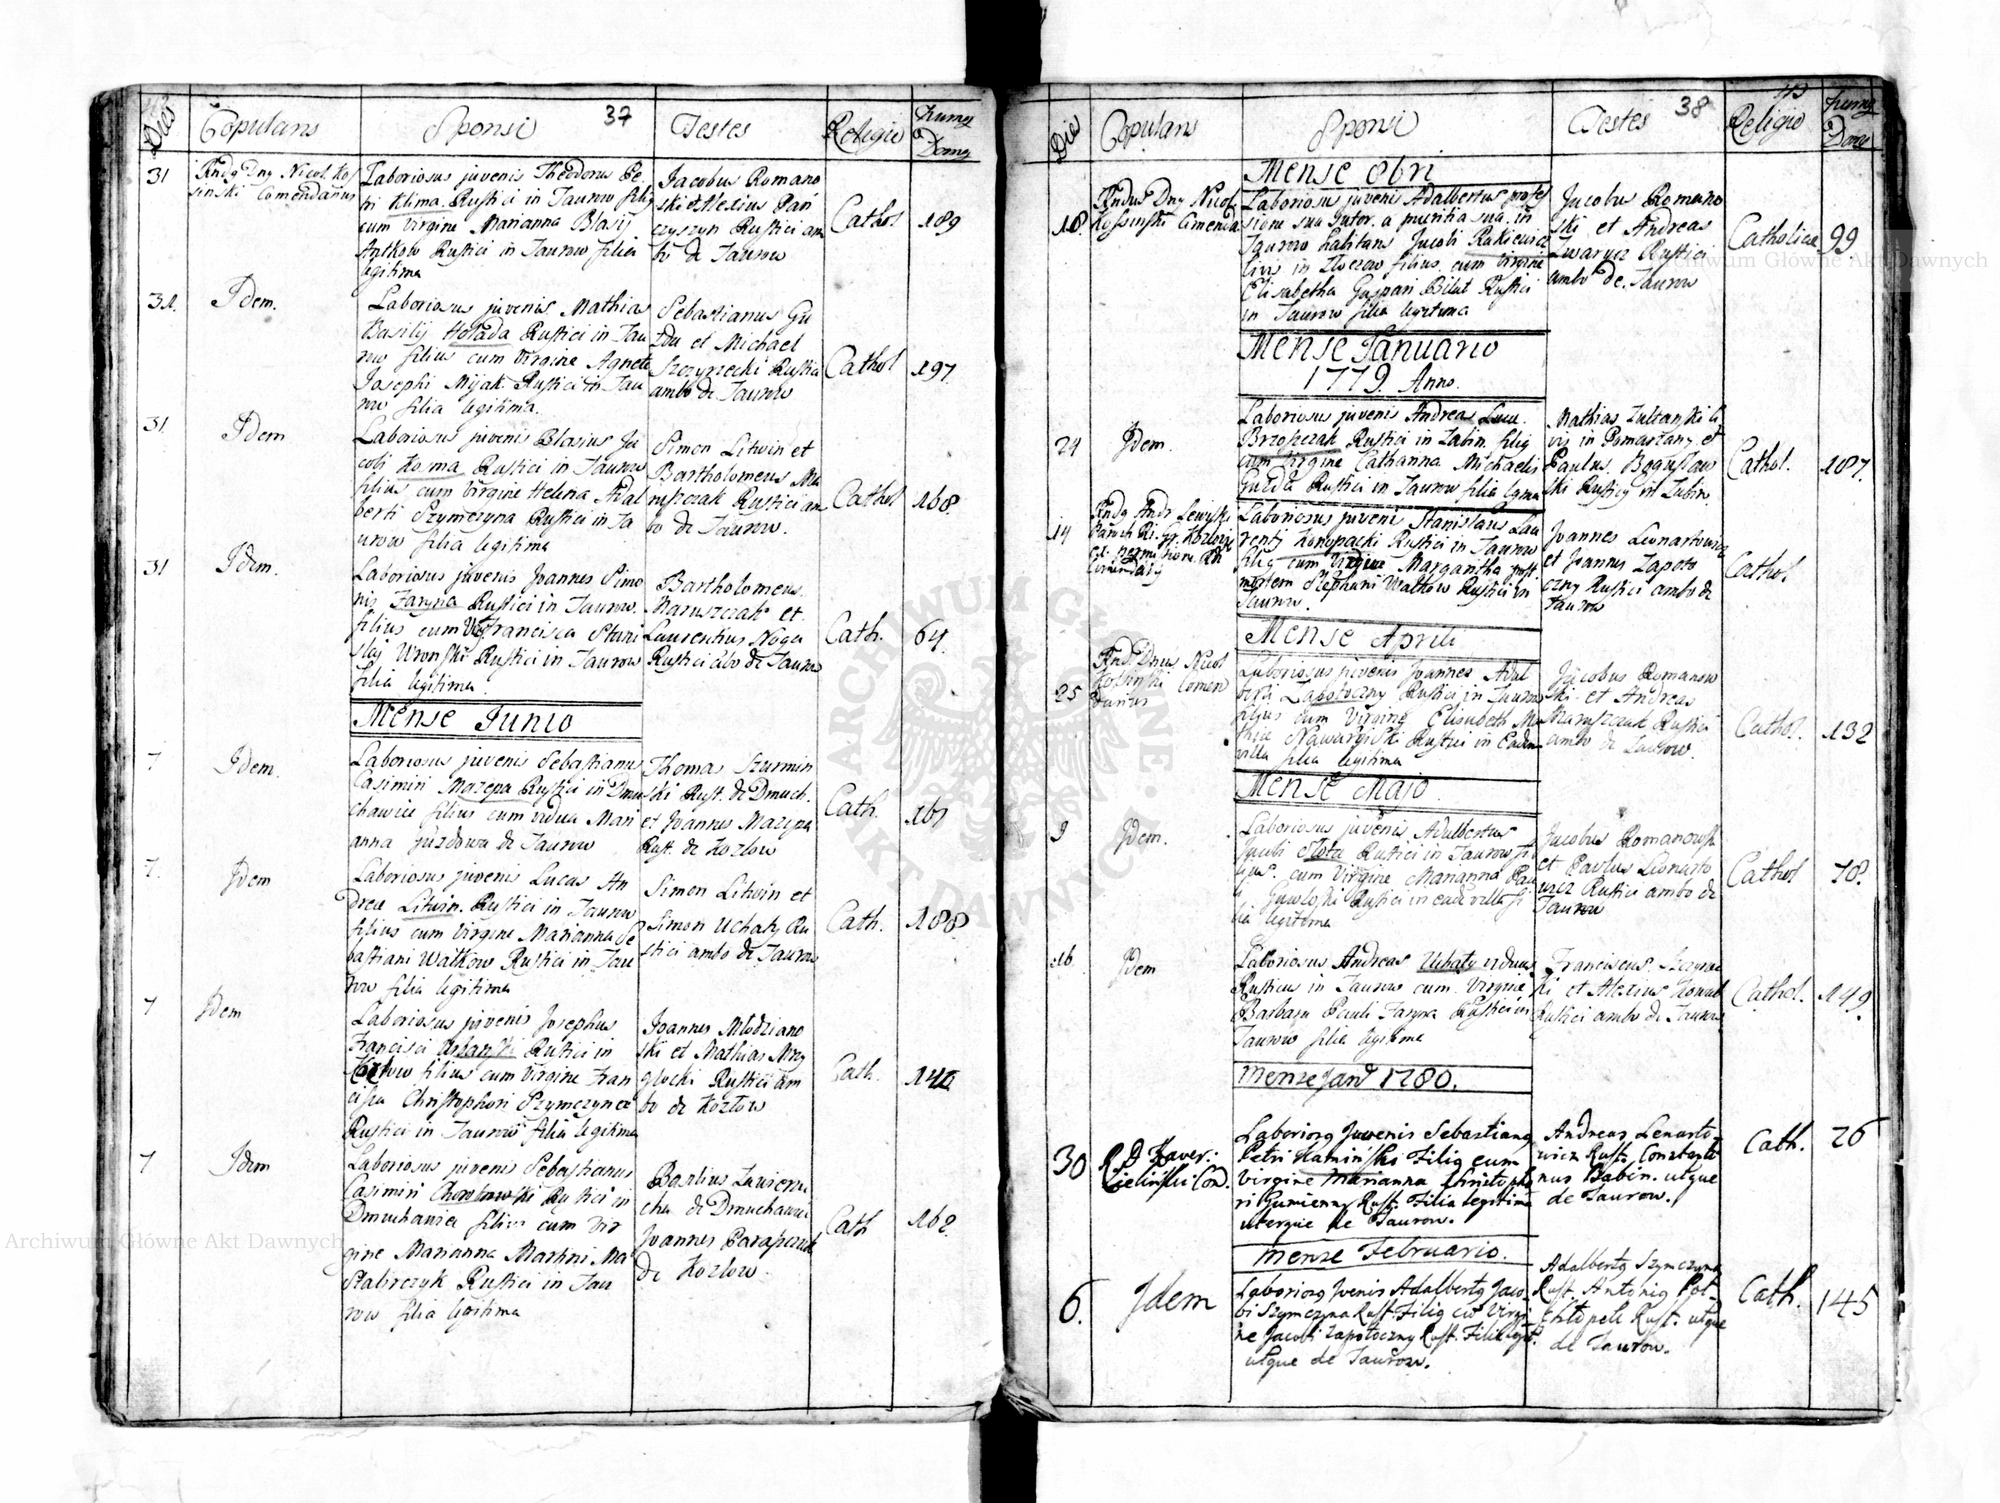 37
Dies Copulans Sponsi Testes Religio Numg Domg
31
Rndg Dng Nicol. Kos
sinski Comendarius
Laboriosus juvenis Theodorus Pe
tri Klima Rustici in Taurow filig
cum virgine Marianna Blasij
Antkow Rustici in Taurow filia
legitima
Jacobus Romano
ski et Alexius Pan
czyszyn Rustici am
bo de Taurow
Cathol
189
31.
Idem.
Laboriosus juvenis Mathias
Basilij Holada Rustici in Tau
row filius cum virgine Agnete
Josephi Mijak Rustici in Tau
row filia legitima.
Sebastianus Gu
zda et Michael
Szczyrzecki Rustici
ambo de Taurow
Cathol
197
31
Idem
Laboriosus juvenis Blasius Ja
cobi Kosma Rustici in Taurow
filius cum virgine Helena Adal
berti Szymczyna Rustici in Ta
urow filia legitima
Simon Litwin et
Bartholomeus Ma
ruszczak Rustici am
bo de Taurow.
Cathol
168
31
Idem.
Laboriosus juvenis Joannes Simo
nis Faryna Rustici in Taurow.
filius cum Vir Francisca Stani
slai Wronski Rustici in Taurow
filia legitima.
Bartholomeus
Maruszczak et
Laurentius Noga
Rustici abo de Taurow
Cath.
64.
Mense Junio
7
Idem.
Laboriosus juvenis Sebastianus
Casimiri Mazepa Rustici in Dmu
chawice filius cum vidua Mari
anna Guzdowa de Taurow
Thoma Szurmin
ski Rust. de Dmuch.
et Joannes Mazepa
Rust. de Kozlow
Cath.
161
7.
Idem
Laboriosus juvenis Lucas An
dreae Litwin. Rustici in Taurow
filius cum virgine Marianna Se
bastiani Watkow Rustici in Tau
row filia legitima
Simon Litwin et
Simon Uchaty Ru
stici ambo de Taurow
Cath.
188
7
Idem
Laboriosus juvenis Josephus
Francisci Urbanski Rustici in
Kozlow filius cum virgine Fran
cisca Christophori Szymczyna
Rustici in Taurow filia legitima
Joannes Mlodziano
ski et Mathias Mrzy
glocki Rustici am
bo de Kozlow
Cath.
140
7
Idem
Laboriosus juvenis Sebastianus
Casimiri Rustici in
Dmuchawice filius cum vir
gine Marianna Martini Ma
Stabrczyk Rustici in Tau
row filia legitima
Basilius
de Dmuchawce
Joannes
de Kozlow.
Cath
162
38
Die Copulans Sponsi Testes Religio Numg Domg
Mense 8bri
18.
Rndus Dng Nicol.
Kossinski Cmenda
Laboriosus juvenis Adalbertus profes
sione sua sutor. a pueritia sua in
Taurow habitans Jacobi Rakiewicz
Civis in Zloczow filius cum virgine
Elisabetha Gaspari Bilut Rustici
in Taurow filia legitima
Jacobus Romano
ski et Andreas
Zwarycz Rustici
ambo de Taurow
Catholicae
99
Mense Januario
1779. Anno.
24
Idem.
Laboriosus juvenis Andreas Lucae
Brzoszczak Rustici in Zabin filig
cum virgine Catharina Michaelis
Guzda Rustici in Taurow filia lgma
Mathias Zultanski Ci
vis in Pomorzany et
Paulus Boguslaw
ski Rusticg in Zabin.
Cathol.
187.
14
Rndg Andr Lewicki
Laboriosus juvenis Stanislaus Lau
renti Konopacki Rustici in Taurow
filig cum Virgine Margaritha post
mortem Stephani Watkow Rustici in
Taurow.
Joannes Leonartowicz
et Joannes Zapoto
czny Rustici ambo de
Taurow
Cathol.
Mense Aprili
25
Rnd Dnus Nicol
Kosinski Comen
darius
Laboriosus juvenis Joannes Adal
berti Zapotoczny Rustici in Taurow
filius cum Virgine Elisabeth Ma
thiae Nawarynski Rustici in eadem
villa filia legitima
Jacobus Romanow
ski et Andreas
Maruszczak Rustici
ambo de Taurow.
Cathol.
132
Mense Majo
9
Idem.
Laboriosus juvenis Adalbertus
Jacobi Slota Rustici in Taurow fi
lius. cum Virgine Marianna Pau
li Rustici in eade villa fi
lia legitima
Jacobus Romanowski
et Paulus Leonarto
wicz Rustici ambo de
Taurow
Cathol
78.
16
Idem
Laboriosus Andreas Uchaty viduus
Rusticus in Taurow cum Virgine
Barbara Pauli Faryna Rustici in
Taurow filia legitima
Franciscus Szczyrze
ki et Alexius Kowal
Rustici ambo de Taurow
Cathol.
149
Mense Janr 1780.
30
R.D Xaver:
Cielinski Com.
Laboriosg Juvenis Sebastiang
Petri Kaminski Filig cum
virgine Marianna Christopho
ri Gumienny Rust. Filia legitima
uterque de Taurow.
Andreas Lenarto-
wicz Rust. Constanti
nus Babin. utque
de Taurow.
Cath.
26
Mense Februario.
6.
Idem
Laboriosg Jvenis Adalbertg Jaco-
bi Szymczyna Rust. Filig cu Virgi-
ne Jacobi Zapotoczny Rust. Filia lgt.
utque de Taurow.
Adalbertg Szymczyna
Rust. Antonig Pol-
Chlopek Rust. utque
de Taurow.
Cath.
145
Archiwum Główne Akt Dawnych
Archiwum Główne Akt Dawnych
ARCHIWUM GŁÓWNE AKT DAWNYCH